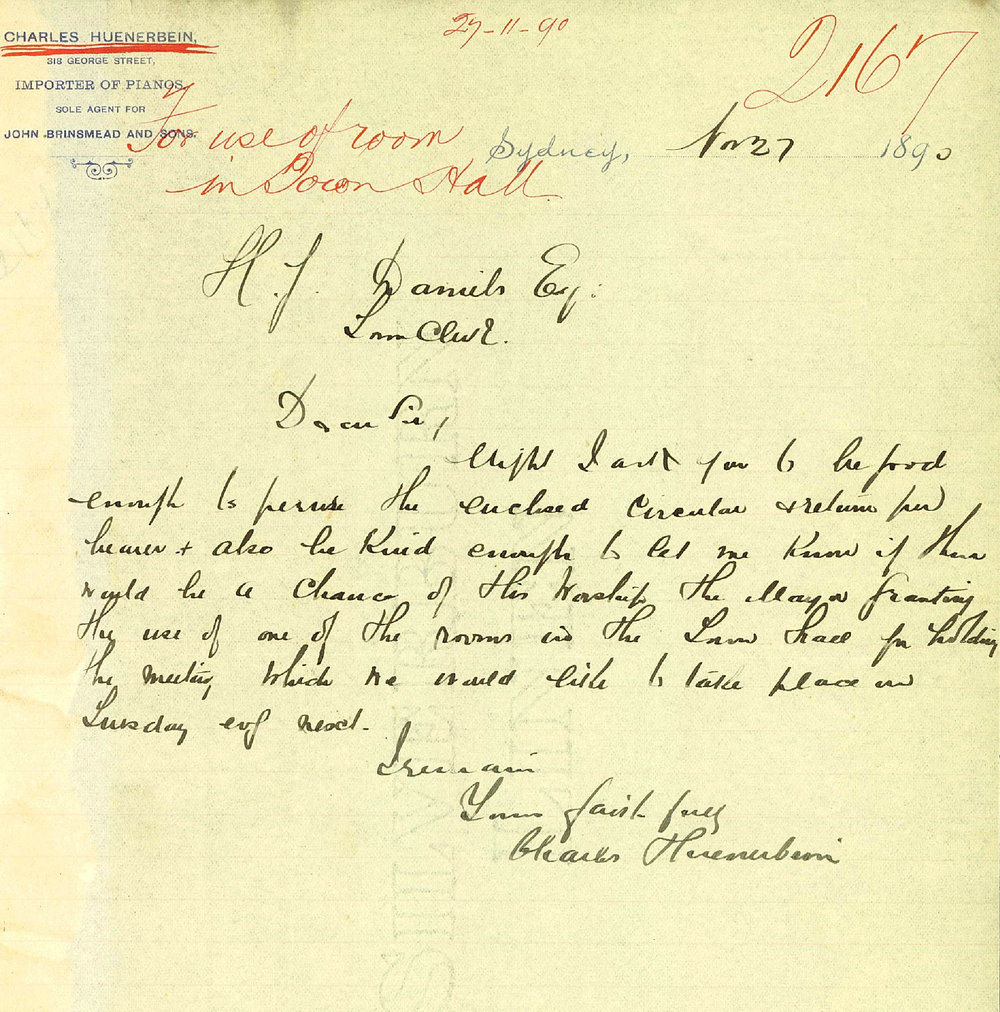 27-11-90
2167
CHARLES HUENERBEIN,
318 GEORGE STREET,
IMPORTER OF PIANOS,
SOLE AGENT FOR
JOHN BRINSMEAD AND SONS.
For use of room
in Town Hall
Sydney, Nov 27 1890
H. J. Daniels Esq:
Town Clerk.
Dear Sir,
Might I ask you to be good
enough to peruse the enclosed circular & return per
bearer & also be kind enough to let me know if there
would be a chance of His Worship the Mayor granting
the use of one of the rooms in the Town Hall for holding
the meeting which we would like to take place on
Tuesday evg next.
I remain
Yours faithfully
Charles Huenerbein